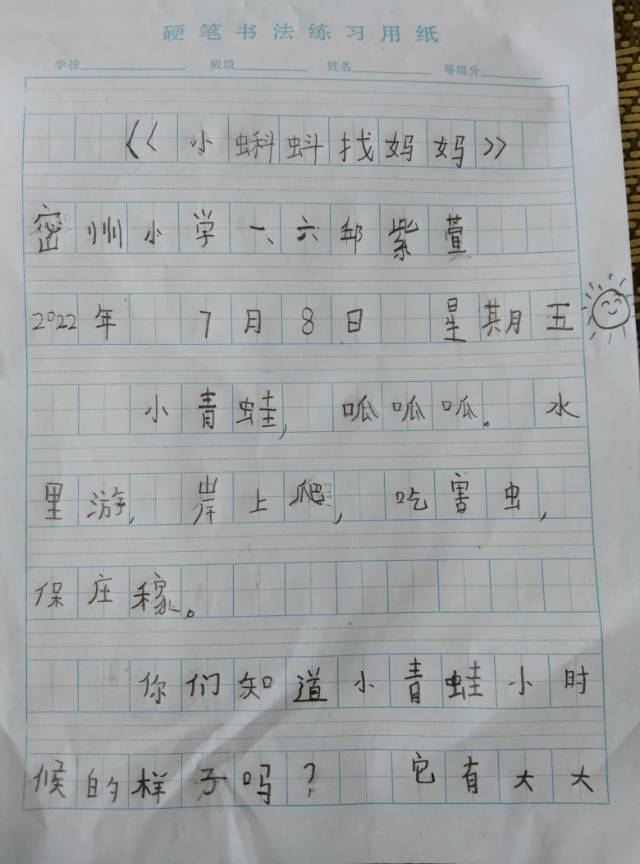 硬笔书法练习用纸
学校 班级 姓名 等级分
《小蝌蚪找妈妈》
密州小学一、六邱紫萱
2022年 7月8日 星期五
小青蛙, 呱呱呱。水
里游, 岸上爬, 吃害虫,
保庄稼。
你们知道小青蛙小时
候的样子吗? 它有大大